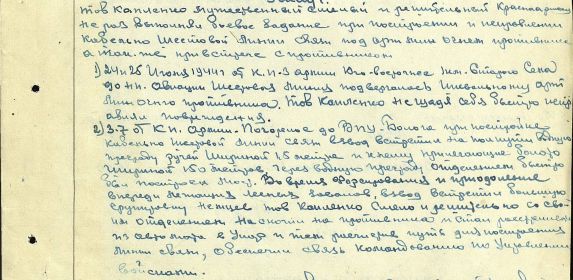 Тов Капленко мужественный смелый и решительный Красноармеец
не раз выполнял боевое задание при построении и исправлении
кабельно шестовой линии связи под арт мин огнем противника
а так же при встрече с противником
1) 24 и 25 Июня 1944 г от К.П-3 армии Юго-восточнее
до Авиации Шестовая линия подвергалась шквальному арт
мин огню противника. Тов Капленко не щадя себя быстро исп-
равлял повреждения.
2) 3-7 от К.П. Армии - Погорелое до ВПУ - Болоча при постройке
кабельно шестовой линии связи взвод встретил на пути водную
преграду ручей шириной 15 метров и к нему прилегающее болото
шириной 150 метров. Через водную преграду отделением быстро
был построен мост. Во время форсирования и преодоление
впереди лежащих лесных завалов, взвод встретил большую
группировку немцев тов Капленко смело и решительно со сво-
им отделением наскочил на противника и стал расстреливать
из автомата в упор и тем расчистил путь для построения
линии связи, обеспечив связь командованию по управлению
войсками.